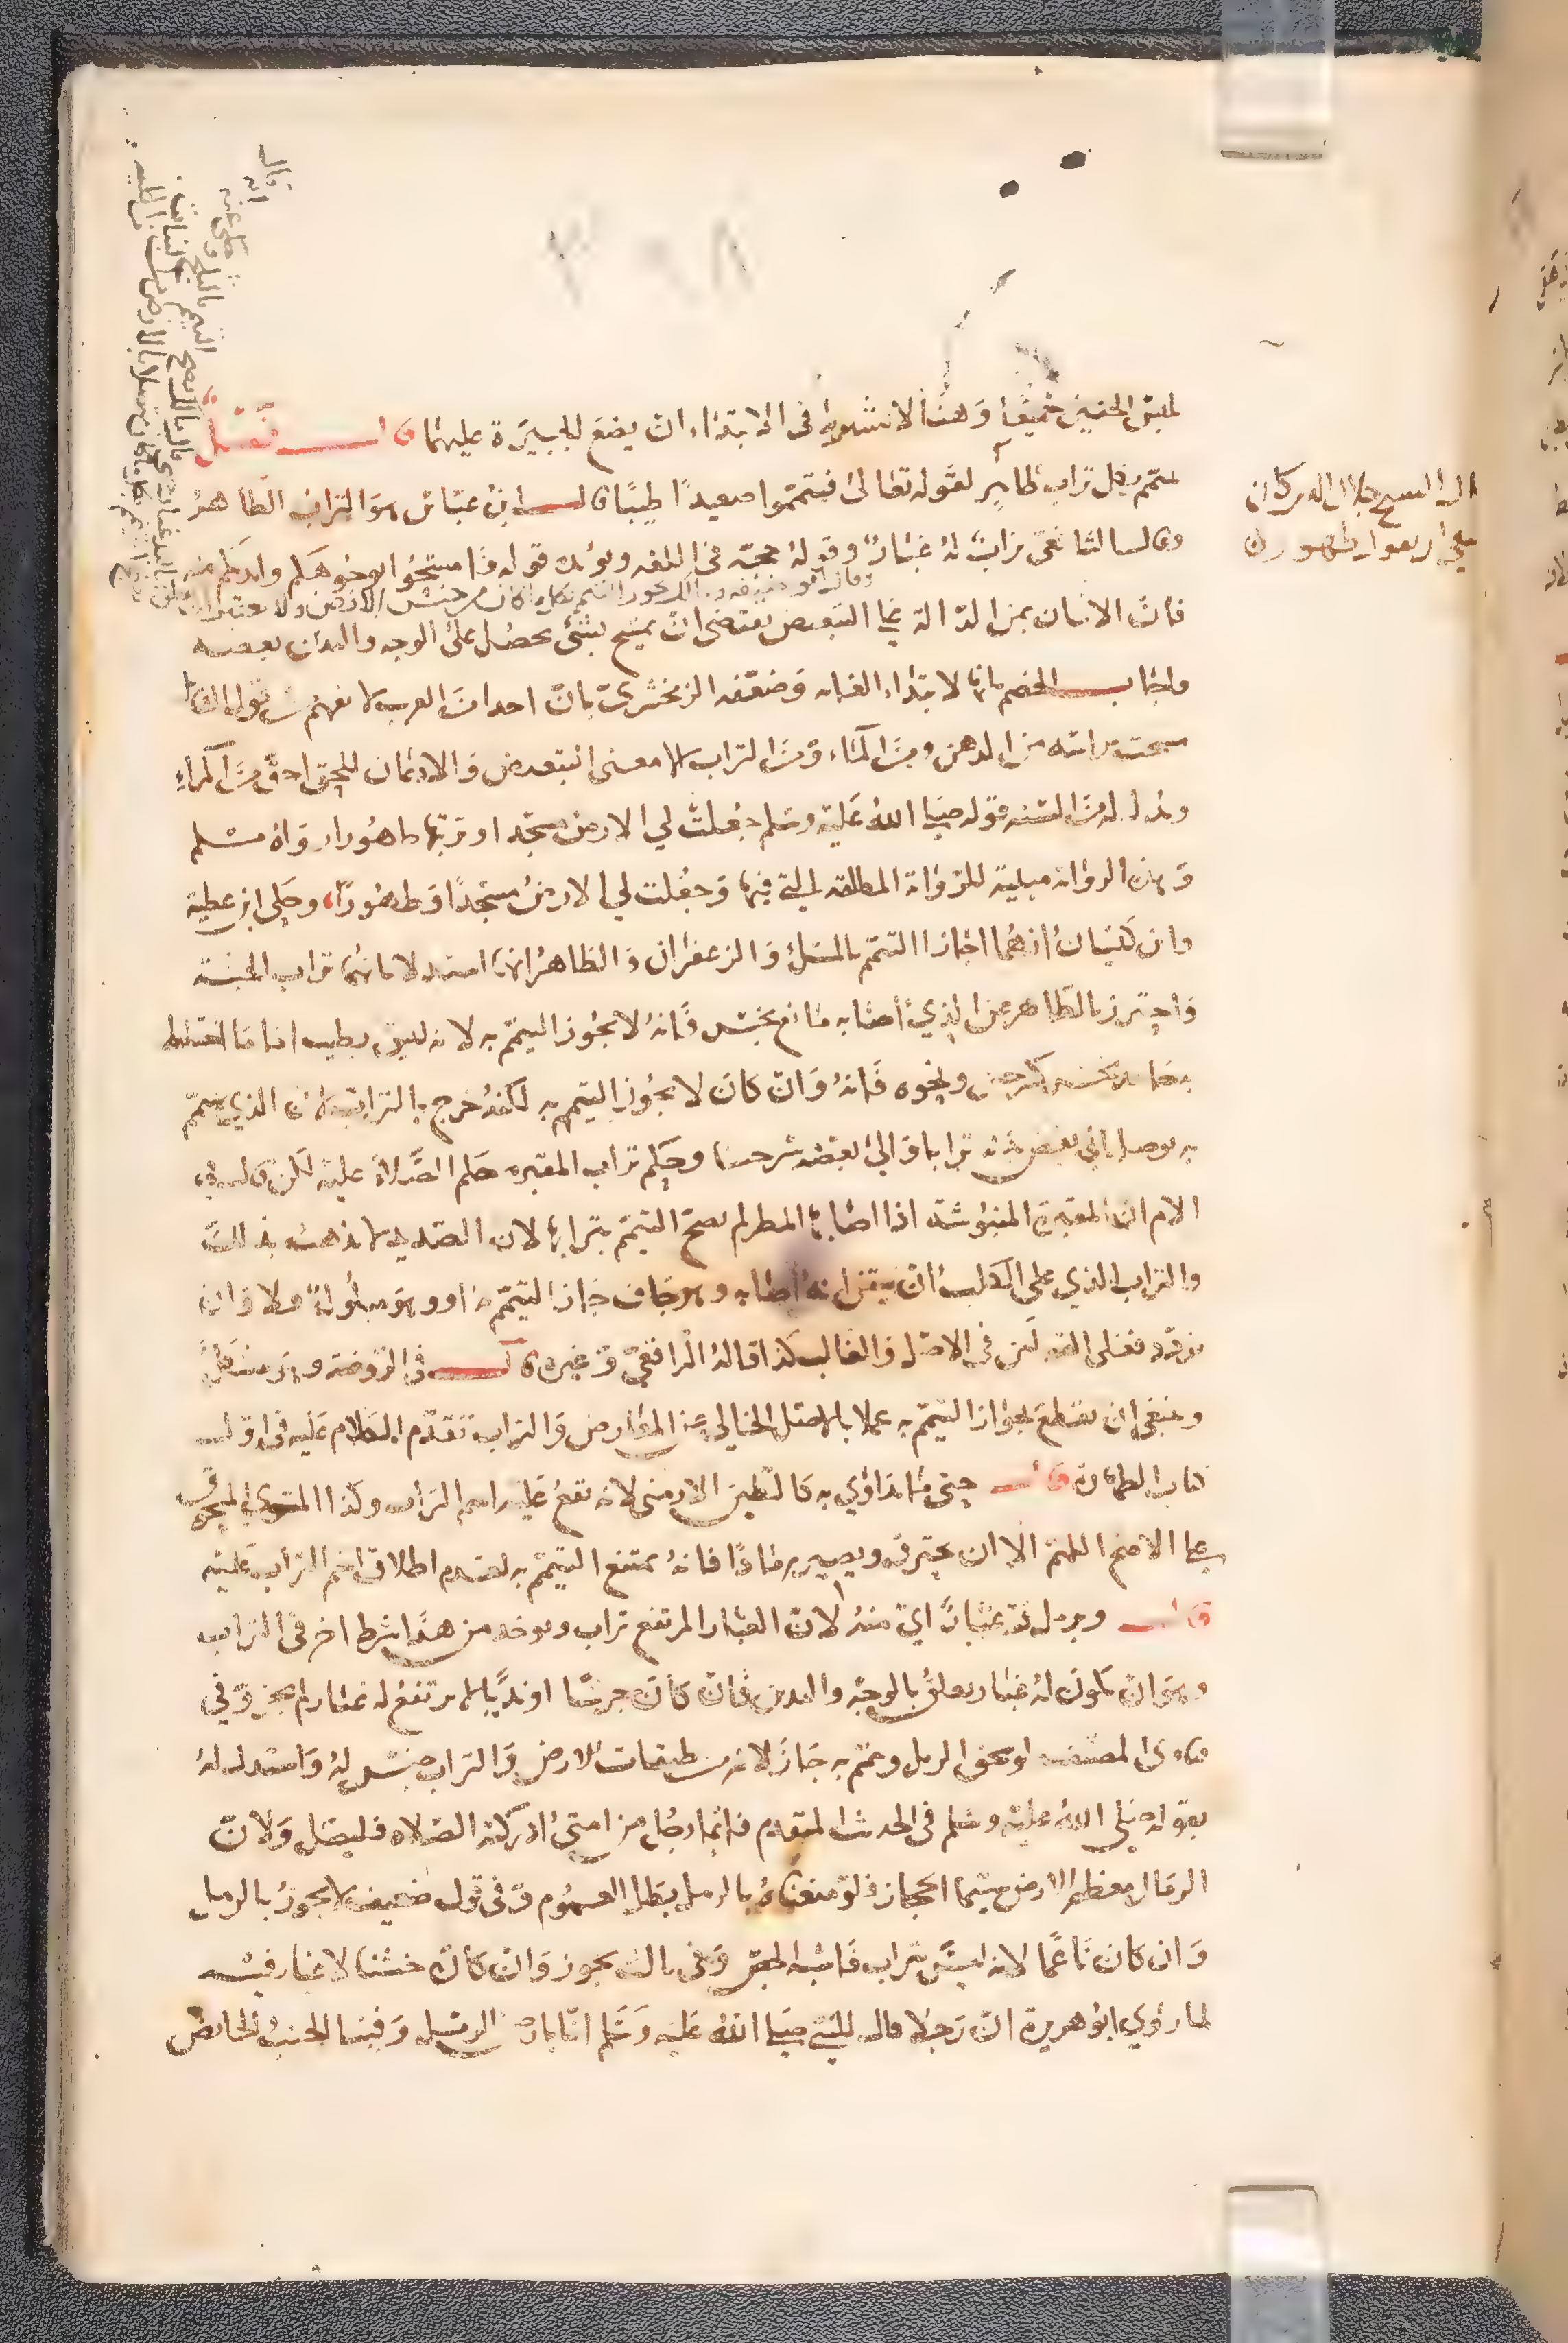 لمبيض الخفين جميعا وهذا لا نشويه في الابتداء ان يضع للجبيرة عليهما قال فصل
يتيمم بكل تراب طاهر لقوله تعالى فتيمموا صعيدا طيبا قال ابن عباس هو التراب الطاهر
وقال الشافعي تراب له غبار وقوله حجة في اللغه ويؤيده قوله فامسحوا بوجوهكم وايديكم منه
وقال ابو حنيفه ومالك يجوز التيمم بكل ما كان من جنس الارض ولا
فان الاتيان بمن الدالة على التبعيض يقتضي ان يمسح بشئ يحصل على الوجه واليدين بعضه
واجاب الخصم بانها لابتداء الغايه وضعفه الزمخشري بان احدا من العرب لا يفهم من قول القائل
مسحت براسه من الدهن ومن الماء ومن التراب الا معنى التبعيض والاذعان للحق احق من المراء
ويدل له من السنه قوله صلى الله عليه وسلم جعلت لي الارض مسجدا وتربتها طهورا رواه مسلم
وهذه الرواية مبينة للرواية المطلقه التي فيها وجعلت لي الارض مسجدا وطهورا وحكى ابن عطية
وابن كيسان انهما اجازا التيمم بالمسك والزعفران والظاهر انهما استدلا بانهما تراب الجنة
واحترز بالطاهر عن الذي اصابه مائع نجس فانه لا يجوز التيمم به لانه ليس بطيب اما ما اختلط
به جامد نجس كرجيع ونحوه فانه وان كان لا يجوز التيمم به لكنه خرج بالتراب لان الذي يتيمم
به يوصل الى بعض بدنه ترابا والى بعضه نجسا وحكم تراب المقبره حكم الصلاة عليه لكن قال في
الام ان المقبرة المنبوشة اذا اصابها المطر لم يصح التيمم بترابها لان الصديد لا يذهب بذلك
والتراب الذي على الكلب ان تيقن انه اصابه وهو جاف جاز التيمم به او وهو مبلول فلا وان
تردد فعلى القولين في الاصل والغالب كذا قاله الرافعي وغيره قال في الروضة وهو مشكل
وينبغي ان يقطع بجواز التيمم به عملا بالاصل الخالي عن المعارض والتراب تقدم الكلام عليه في اول
كتاب الطهارة قال حتى ما يداوي به كالطين الارمني لانه يقع عليه اسم التراب وكذا المشوي المسحوق
على الاصح اللهم الا ان يحترق ويصير رمادا فانه يمتنع التيمم به لعدم اطلاق اسم التراب عليه
قال وبرمل فيه غبار اي منه لان الغبار المرتفع تراب ويوخذ من هذا شرط اخر في التراب
وهو ان يكون له غبار يعلق بالوجه واليدين فان كان جرشا او نديا لا يرتفع له غبار لم يجز وفي
فتاوى المصنف لو سحق الرمل وتيمم به جاز لانه من طبقات الارض والتراب جنس له واستدل له
بقوله صلى الله عليه وسلم في الحديث المتقدم فايما رجل من امتي ادركته الصلاه فليصل ولان
الرمال معظم الارض سيما الحجاز فلو منعناه بالرمل بطل العموم وفي قول ضعيف لا يجوز بالرمل
وان كان ناعما لانه ليس بتراب فاشبه الجص وفي ثالث يجوز وان كان خشنا لا غبار فيه
لما روي ابو هريرة ان رجلا قال للنبي صلى الله عليه وسلم انا بارض الرمل وفينا الجنب والحائض